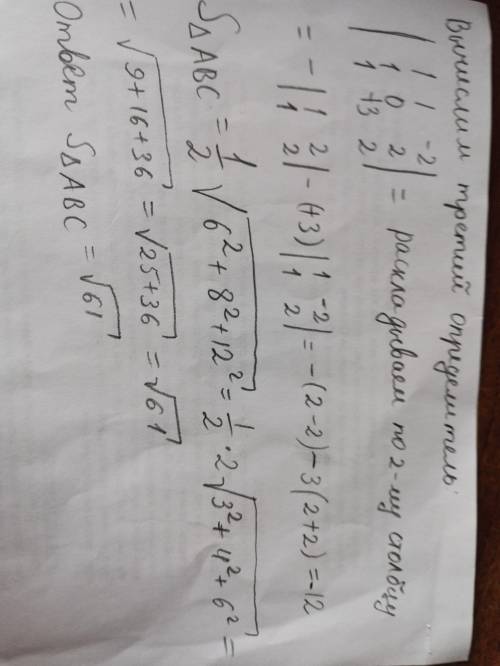 Вычислим третий определитель:
| 1 1 -2 |
| 1 0 2 | = раскладываем по 2-му столбцу
| 1 +3 2 |
= - | 1 2 | - (+3) | 1 -2 | = -(2-2) - 3(2+2) = -12
| 1 2 | | 1 2 |
S△ABC = 1/2 √(6² + 8² + 12²) = 1/2 · 2 √(3² + 4² + 6²) =
= √(9+16+36) = √(25+36) = √61
Ответ S△ABC = √61